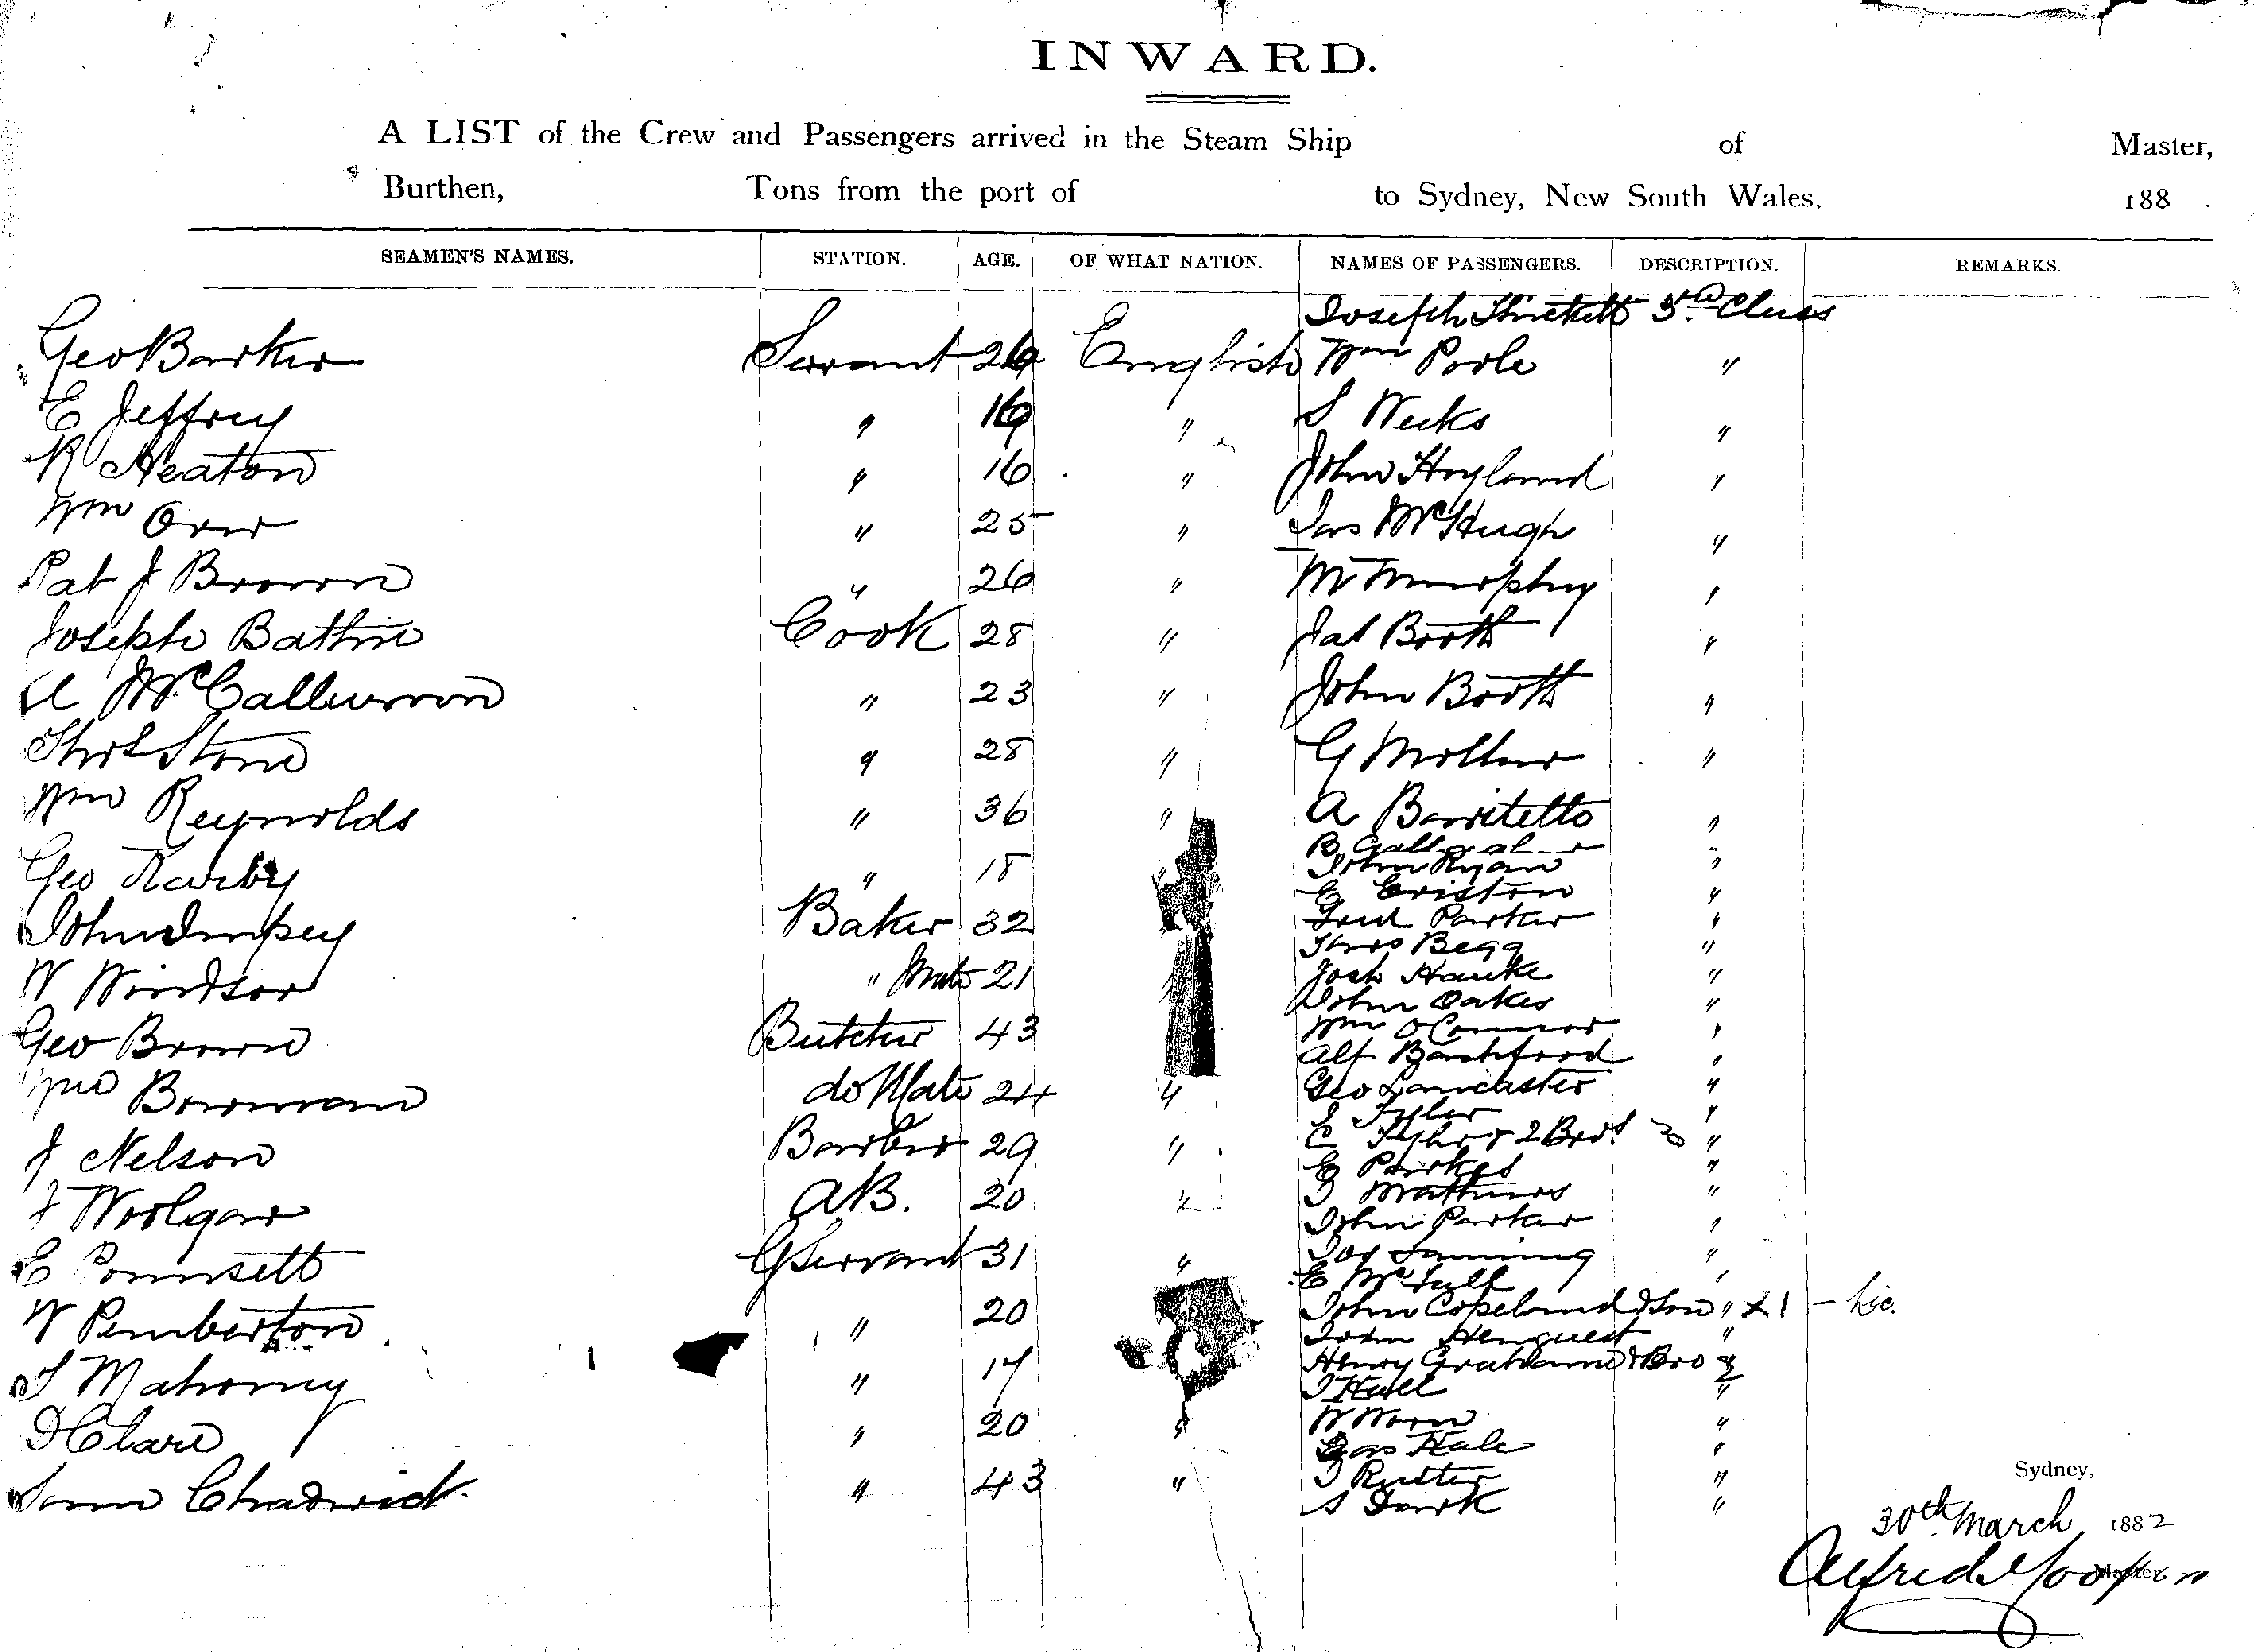 INWARD.
A LIST of the Crew and Passengers arrived in the Steam Ship of Master,
Burthen, Tons from the port of to Sydney, New South Wales, 188 .
SEAMEN'S NAMES. STATION. AGE. OF WHAT NATION. NAMES OF PASSENGERS. DESCRIPTION. REMARKS.
Joseph 3rd Class
Geo Barker Servant 26 English Wm Poole "
E Jeffrey " 16 " S Weeks "
R Heaton " 16 " John Hoyland "
Wm Orr " 25 " Jas McHugh "
Pat J Brown " 26 " M Murphy "
Joseph Cook 28 " Jas Booth "
A McCallumon " 23 " John Booth "
Thos Stone " 28 " G "
Wm Reynolds " 36 " A "
B
Geo " 18 " John Ryan "
E "
John Impey Baker 32 Fred Parker "
Thos Begg "
W Windsor " Mate 21 Josh Hawke "
John Oakes "
Geo Brown Butcher 43 Wm O'Connor "
Alf Bashford "
Bowman do Mate 24 " Geo Lancaster "
E Tyler "
J Nelson Barber 29 " E Tyler & 2 Bros "
E Parkes "
Woolgar AB. 20 " Mathews "
John Parker "
E Pounsett G Servant 31 " "
E "
W Pemberton " 20 John Copeland & Son "
John "
S Mahoney " 17 Henry Graham & Bro
J Hull "
D Clare " 20 " W "
Hale "
Saml Chadwick " 43 " J Rutter "
S Dark "
Sydney,
30th March 1882
Alfred
Master.